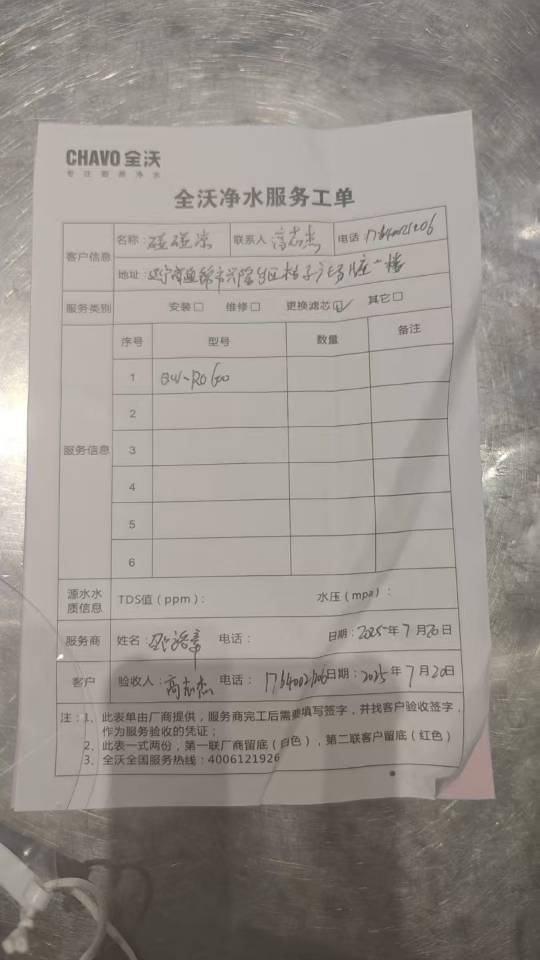 CHAVO 全沃
专注商用净水
全沃净水服务工单
客户信息
名称: 碰碰凉 联系人 高志杰 电话 17640021206
地址: 辽宁省盘锦市兴隆台区 一楼
服务类别 安装□ 维修□ 更换滤芯☑ 其它□
服务信息
序号 型号 数量 备注
1 -RO600
2
3
4
5
6
源水水质信息 TDS值（ppm）: 水压（mpa）:
服务商 姓名: 电话: 日期: 2025年7月20日
客户 验收人: 高志杰 电话: 17640021206 日期: 2025年7月20日
注: 1、此表单由厂商提供，服务商完工后需要填写签字，并找客户验收签字，
作为服务验收的凭证；
2、此表一式两份，第一联厂商留底（白色），第二联客户留底（红色）
3、全沃全国服务热线: 4006121926